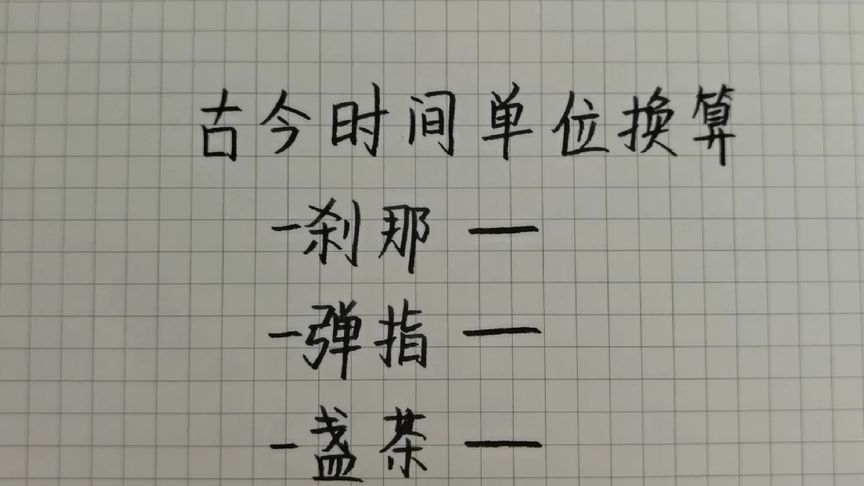 古今时间单位换算
一刹那 —
一弹指 —
一盏茶 —